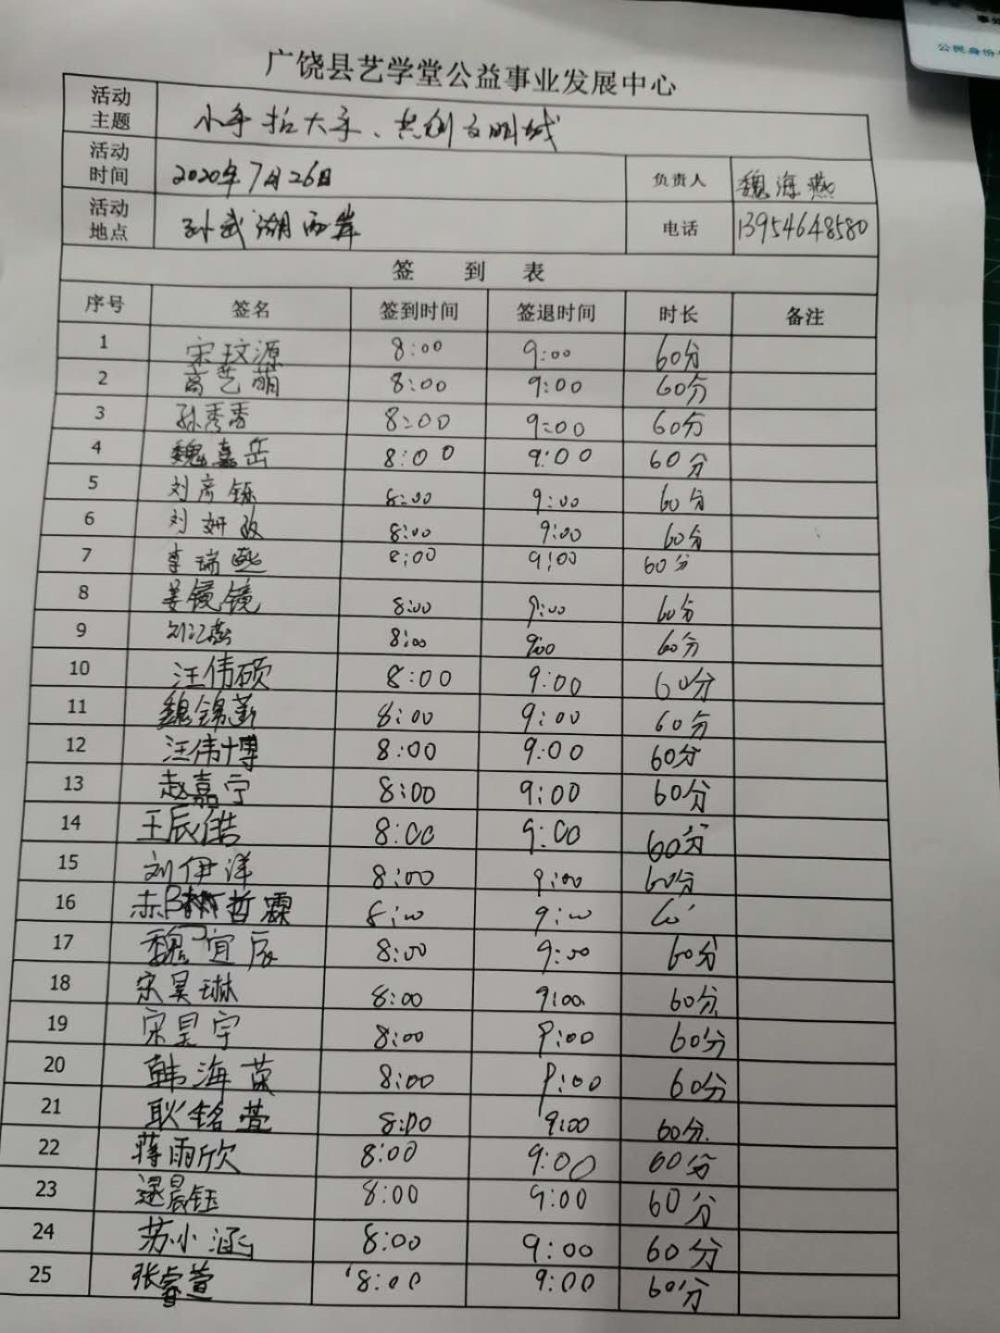 公民身份
广饶县艺学堂公益事业发展中心
活动主题 小手拉大手、共创文明城
活动时间 2020年7月26日 负责人 魏海燕
活动地点 孙武湖西岸 电话 13954648580
签 到 表
序号 签名 签到时间 签退时间 时长 备注
1 宋玟源 8:00 9:00 60分
2 高艺萌 8:00 9:00 60分
3 孙秀香 8:00 9:00 60分
4 魏嘉岳 8:00 9:00 60分
5 刘彦铄 8:00 9:00 60分
6 刘妍 8:00 9:00 60分
7 李瑞熙 8:00 9:00 60分
8 姜镜 8:00 9:00 60分
9 刘江 8:00 9:00 60分
10 汪伟硕 8:00 9:00 60分
11 魏锦 8:00 9:00 60分
12 汪伟博 8:00 9:00 60分
13 赵嘉宁 8:00 9:00 60分
14 王辰皓 8:00 9:00 60分
15 刘伊洋 8:00 9:00 60分
16 哲霖 8:00 9:00 60'
17 魏宜辰 8:00 9:00 60分
18 宋昊琳 8:00 9:00 60分
19 宋昊宇 8:00 9:00 60分
20 韩海 8:00 9:00 60分
21 耿铭萱 8:00 9:00 60分
22 蒋雨欣 8:00 9:00 60分
23 晨钰 8:00 9:00 60分
24 苏小涵 8:00 9:00 60分
25 张睿萱 8:00 9:00 60分